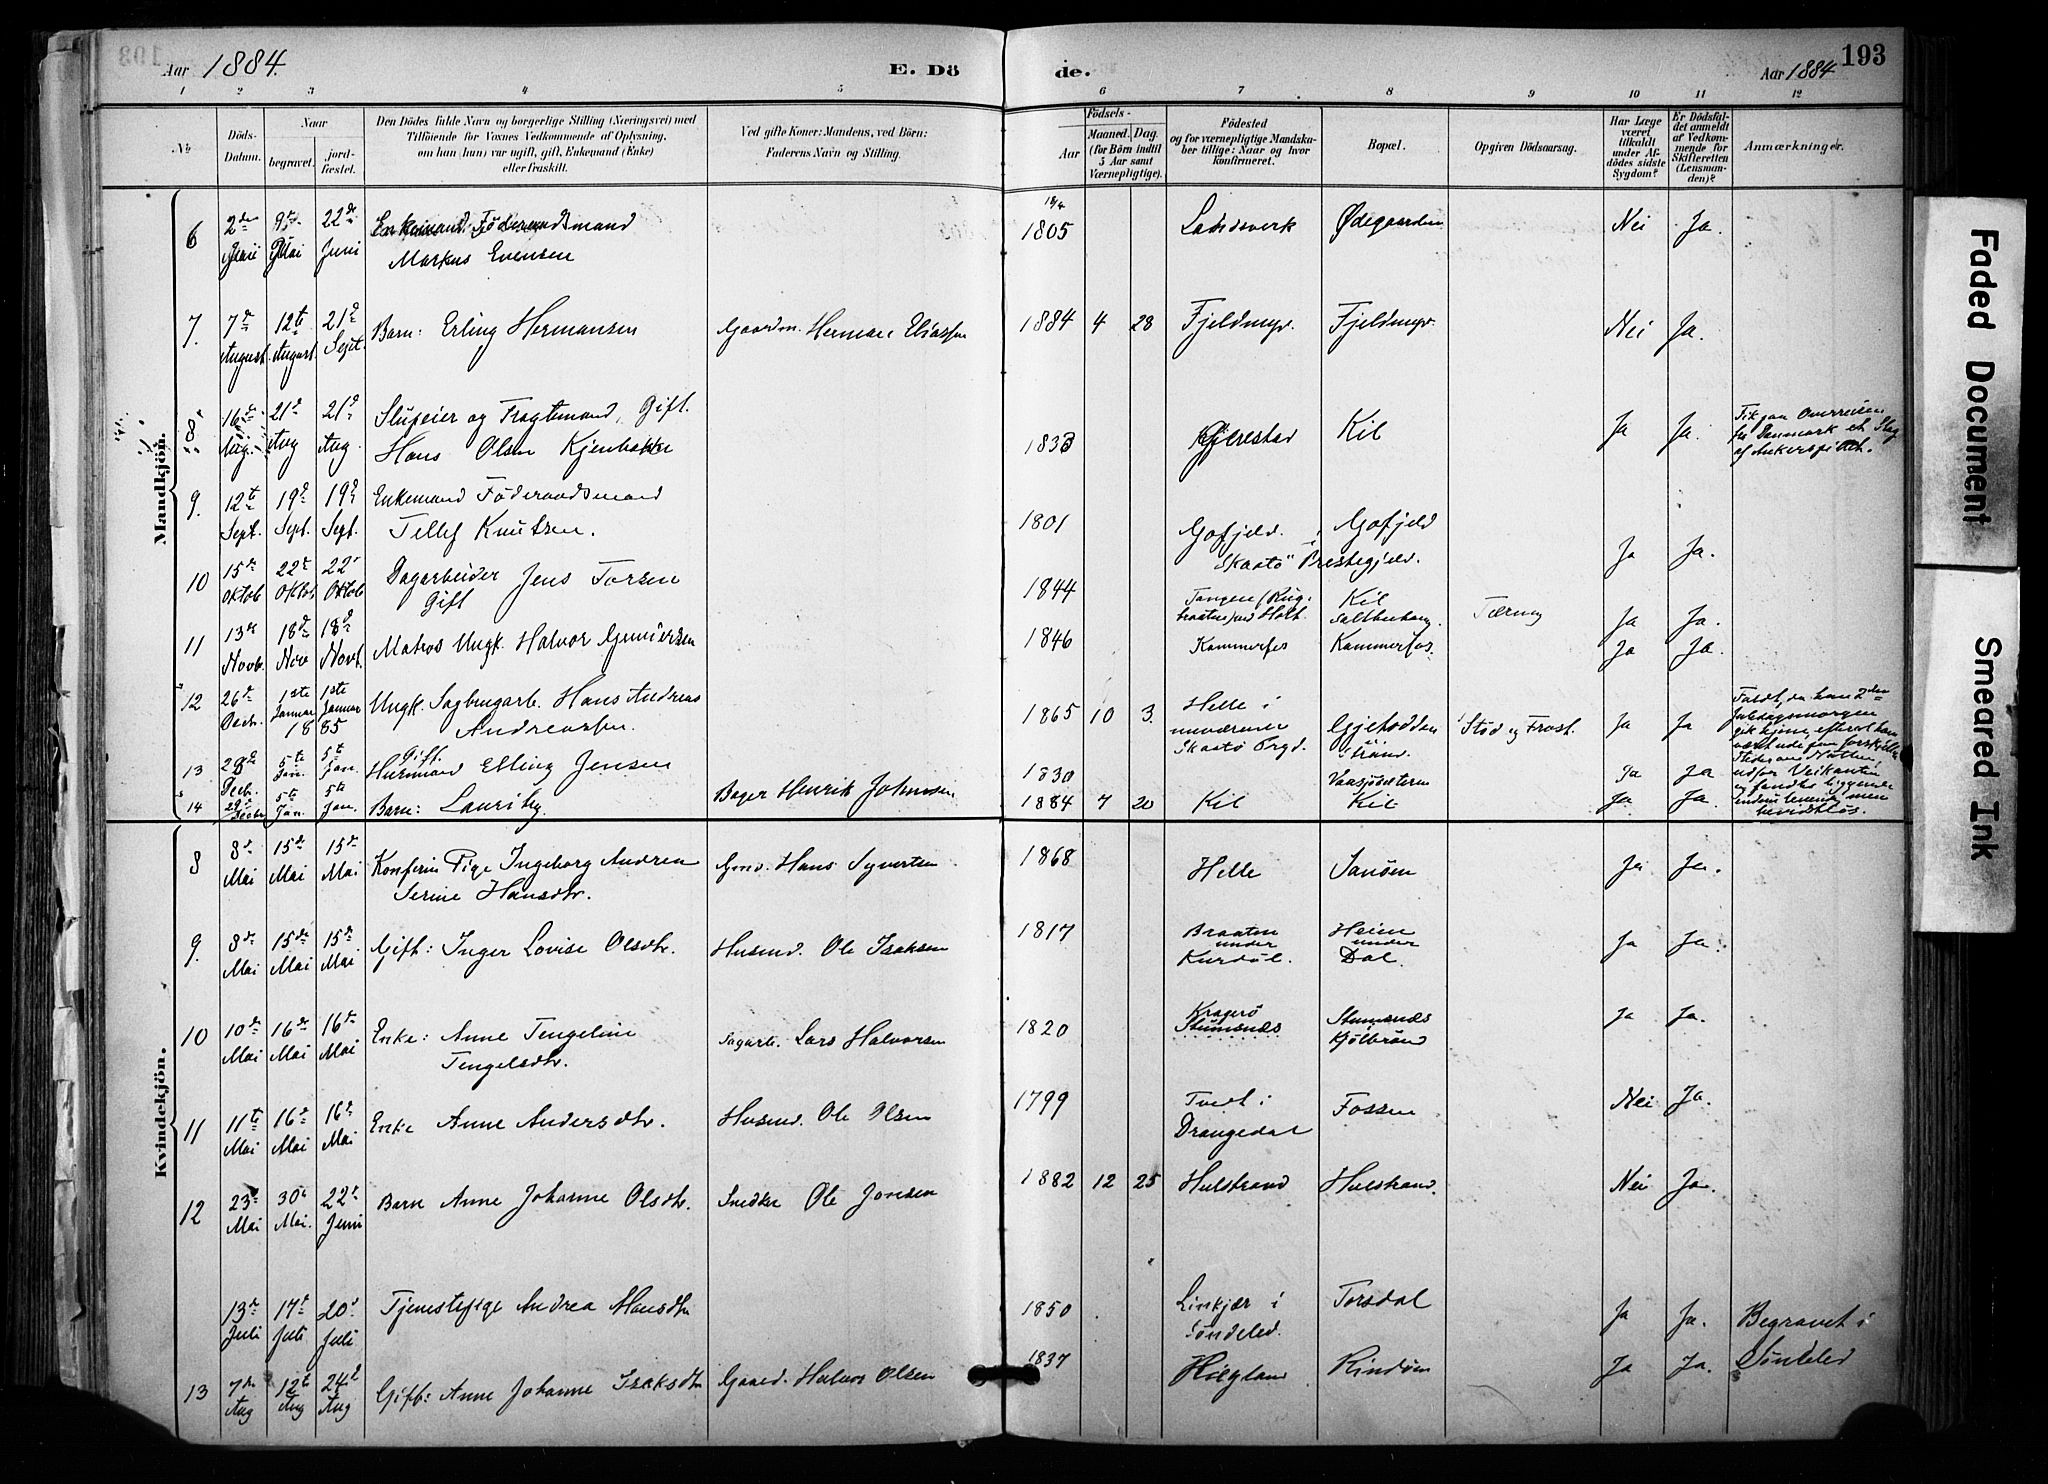 Aar 1884.
E. Dö
de.
Aar 1884
193
1 2 3 4 5 6 7 8 9 10 11 12
№
Döds-Datum.
Naar
begravet.
jordfæstet.
Den Dödes fulde Navn og borgerlige Stilling (Næringsvei) med
Tilföiende for Voxnes Vedkommende af Oplysning,
om han (hun) var ugift, gift, Enkemand (Enke)
eller fraskilt.
Ved gifte Koner: Mandens, ved Börn:
Faderens Navn og Stilling.
Födsels-
Aar
Maaned. Dag.
(for Börn indtil
5 Aar samt
Værnepligtige).
Födested
og for værnepligtige Mandska-
ber tillige: Naar og hvor
konfirmeret.
Bopæl.
Opgiven Dödsaarsag.
Har Læge
været
tilkaldt
under Af-
dödes sidste
Sygdom?
Er Dödsfal-
det anmeldt
af Vedkom-
mende for
Skifteretten
(Lensman-
den)?
Anmærkninger.
Mandkjön.
6 2de 9de Mai 22de Juni Enkemand Föderaadsmand Markus Evensen 1805 Landsverk Ødegaarden Nei Ja.
7. 7de August 12te August 21de Sept. Barn: Erling Hermansen Gaardm. Herman Eliassen 1884 4 28 Fjeldmyr. Fjeldmyr. Nei Ja.
8. 16de Aug. 21de Aug 21de Aug. Slupeier og Fragtemand, Gift. Hans Olsen Kjenbakke 1833 Gjerestad Kil Ja Ja. Fik paa Overreisen fra Danmark et Slag af Ankerspillet.
9. 12te Sept. 19de Sept. 19de Sept. Enkemand Föderaadsmand Tellef Knutsen. 1801 Gofjeld. i Skaatö Prestegjeld. Gofjeld Ja Ja.
10 15de Oktob 22de Oktob 22de Oktob Dagarbeider Jens Torsen Gift 1844 Tangen Kil Tæring Ja Ja.
11 13de Novb. 18de Nov 18de Novb. Matros Ungk. Halvor Gundersen 1846 Kammerfos Kammerfos. Ja Ja.
12 26de Decb. 1ste Januar 1ste Januar 1885 Ungk. Sagbrugarb. Hans Andreas Andreassen. 1865 10 3. Helle i nuværende Skaatö Prgd. Gjetodden i Strand. Stöd og Frost. Ja Ja Faldt, da han 2den Juledagsmorgen gik hjem,
13 28de Decb. 5te Jan. 5te Jan. Gift. Husmand Elling Jensen 1830 Ja Ja
14 29de Decbr 5te Jan. 5te Jan. Barn: Bager Henrik Johnsen 1884 7 20 Kil Kil Ja. Ja.
Kvindekjön.
8 8de Mai 15de Mai 15de Mai Konfirm Pige Ingeborg Andrea Serine Hansdtr. Grnd. Hans Syvertsen 1868 Helle Sanöen Ja Ja.
9. 8de Mai 15de Mai 15de Mai Gift: Inger Lovise Olsdtr. Husmd. Ole Isaksen 1817 Braaten under Kurdöl. Heien under Dal. Ja Ja.
10 10de Mai 16de Mai 16de Mai Enke: Anne Tengeline Tengelsdtr. Sagarb. Lars Halvorsen 1820 Kragerö Stumsnæs Stumsnæs Kjölbrönd Ja Ja.
11 11te Mai 16de Mai 16de Mai Enke Anne Andersdtr. Husmd. Ole Olsen 1799 Tvedt i Drangedal Fossen Nei Ja.
12 23de Mai 30te Mai. 22de Juni Barn Anne Johanne Olsdtr. Snedker Ole Jonsen 1882 12 25 Hulstrand Hulstrand. Nei Ja.
13de Juli 17de Juli 20de Juli Tjenestepige Andrea Hansdtr 1850 Linkjær i Söndeled. Torsdal Ja Ja. Begravet i Söndeled
13 7de Aug 12te Aug 24de Aug Gift: Anne Johanne Isaksdtr Gaard. Halvor Olsen 1837 Rindöm Ja Ja.
Faded Document
Smeared Ink